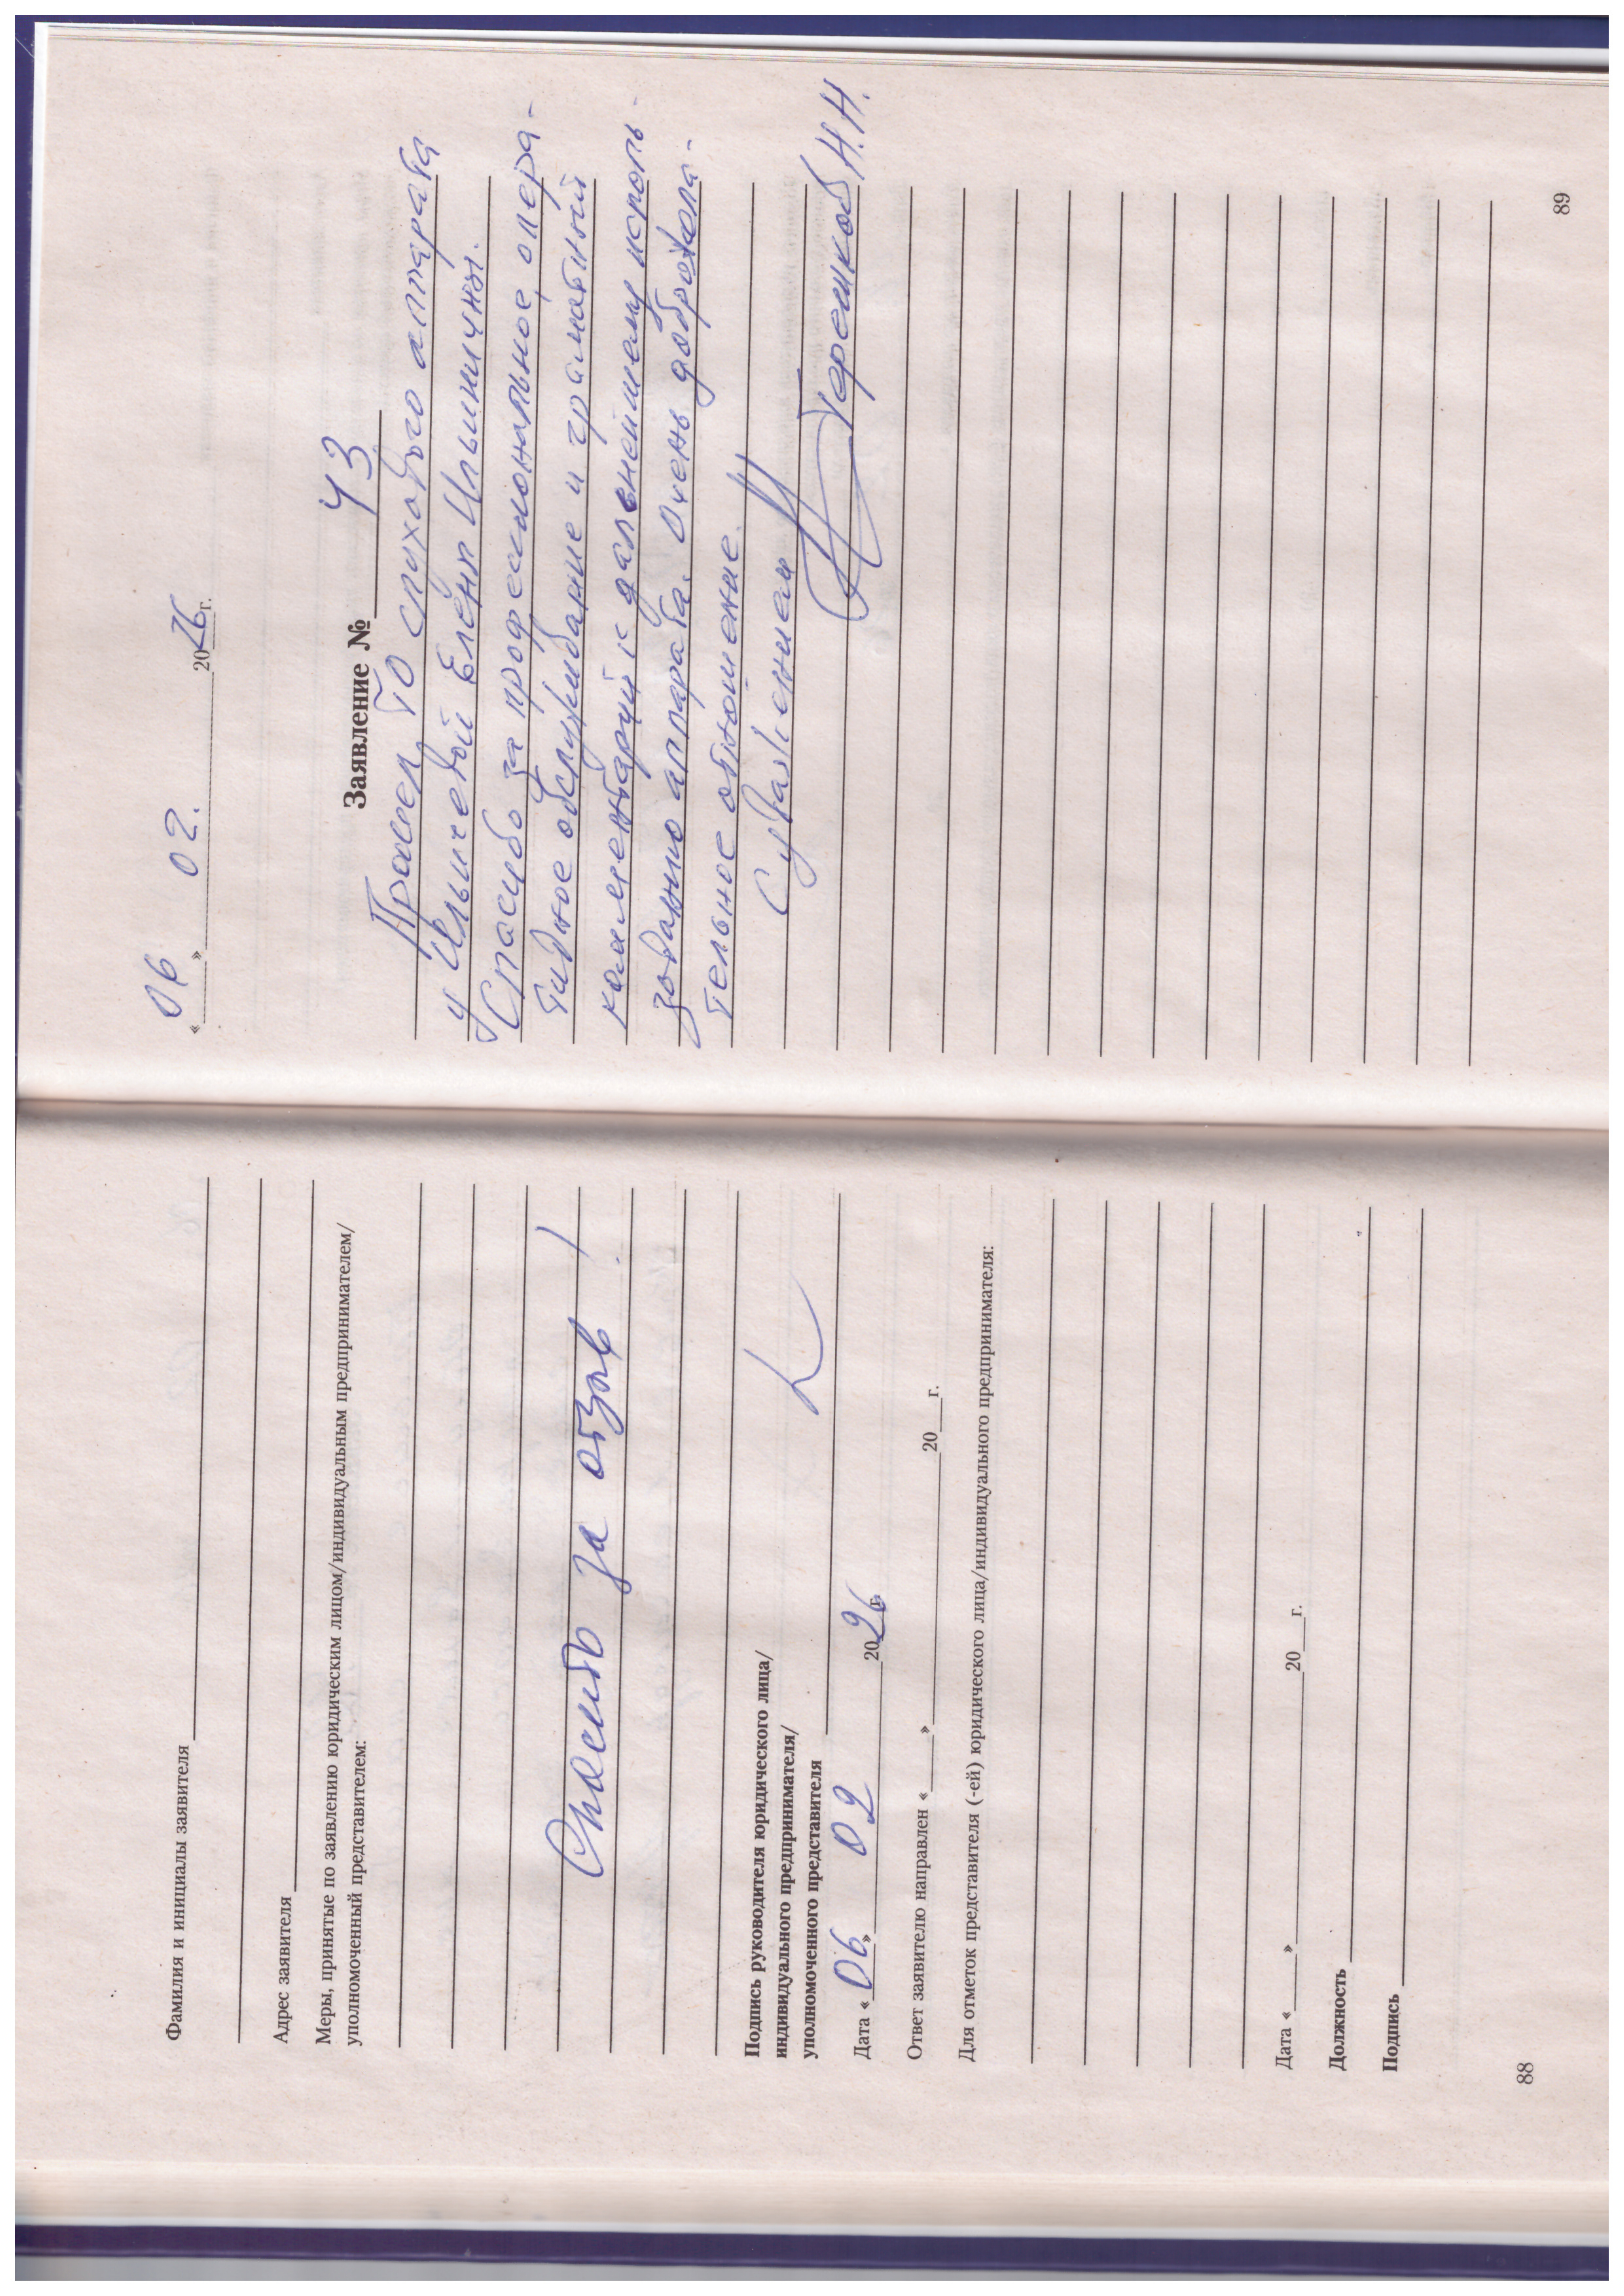 Фамилия и инициалы заявителя
Адрес заявителя
Меры, принятые по заявлению юридическим лицом/индивидуальным предпринимателем/
уполномоченный представителем:
Спасибо за отзыв!
Подпись руководителя юридического лица/
индивидуального предпринимателя/
уполномоченного представителя
Дата «06» 02 2026 г.
Ответ заявителю направлен «____» 20___г.
Для отметок представителя (-ей) юридического лица/индивидуального предпринимателя:
Дата «____» 20___г.
Должность
Подпись
88
«06» 02. 2026г.
Заявление № 43
Провел ТО слухового аппарата
у Ильичевой Елены Ильиничны.
Спасибо за профессиональное, опера-
тивное обслуживание и грамотный
комментарий к дальнейшему исполь-
зованию аппарата. Очень доброжела-
тельное отношение.
С уважением
Терешков Н.Н.
89